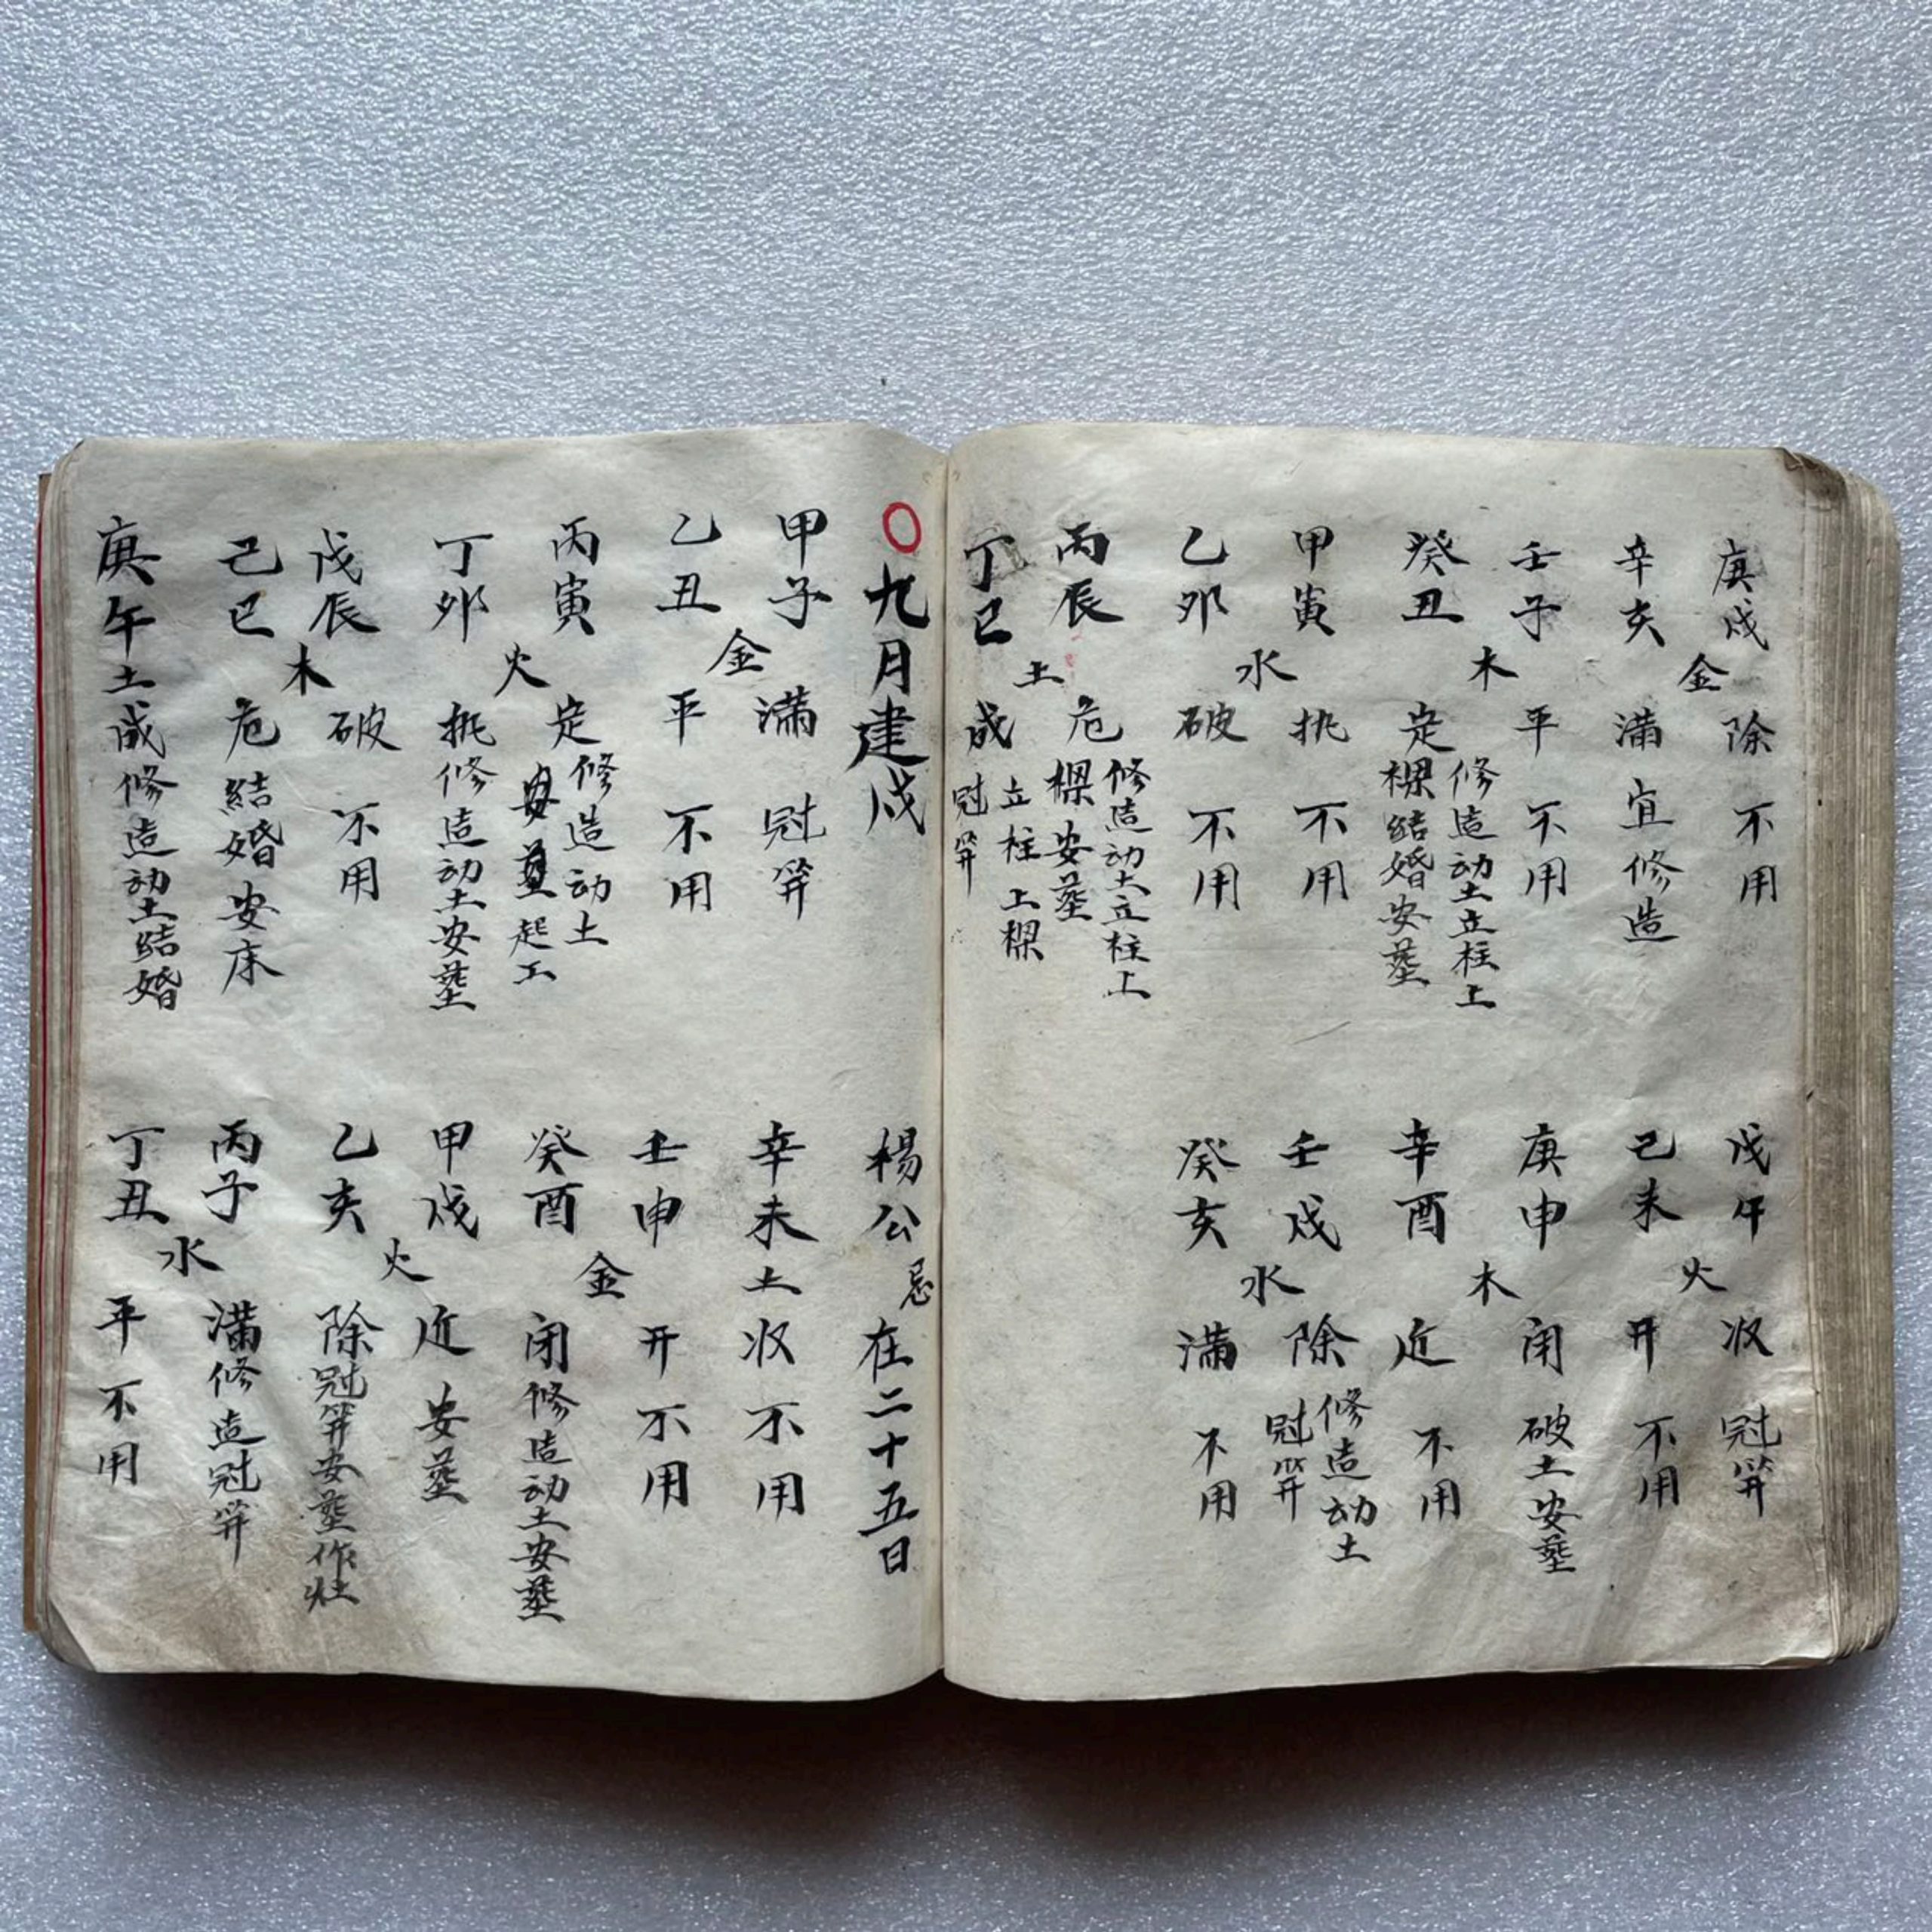 庚戌金除不用
辛亥滿宜修造
壬子木平不用
癸丑定修造动土立柱上
樑結婚安塟
甲寅水执不用
乙卯破不用
丙辰土危修造动土立柱上
樑安塟
丁巳成立柱上樑
冠笄
戊午火收冠笄
己未开不用
庚申木闭破土安塟
辛酉建不用
壬戌水除修造动土
冠笄
癸亥滿不用
〇九月建戌
楊公忌在二十五日
甲子金滿冠笄
乙丑平不用
丙寅火定修造动土
安塟起工
丁卯执修造动土安塟
戊辰木破不用
己巳危結婚安床
庚午土成修造动土結婚
辛未土收不用
壬申金开不用
癸酉闭修造动土安塟
甲戌火建安塟
乙亥除冠笄安塟作灶
丙子水滿修造冠笄
丁丑平不用